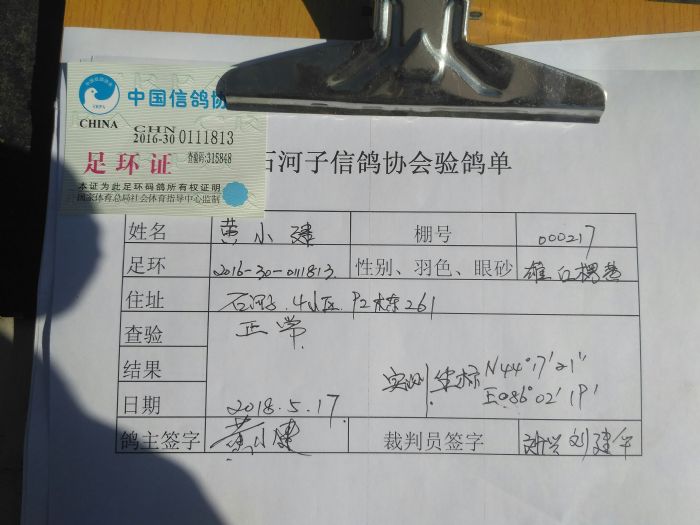 中国信鸽协
CHINA CHN
2016-30 0111813
足环证 查验码:315848
本证为此足环码鸽所有权证明
国家体育总局社会体育指导中心监制
石河子信鸽协会验鸽单
姓名 黄小建 棚号 000217
足环 2016-30-0111813 性别、羽色、眼砂 雄 红楞 黄
住址 石河子 4小区 P2栋261
查验 正常
结果 实测坐标 N44°17'21"
E086°02'19'
日期 2018.5.17.
鸽主签字 黄小建 裁判员签字 刘建